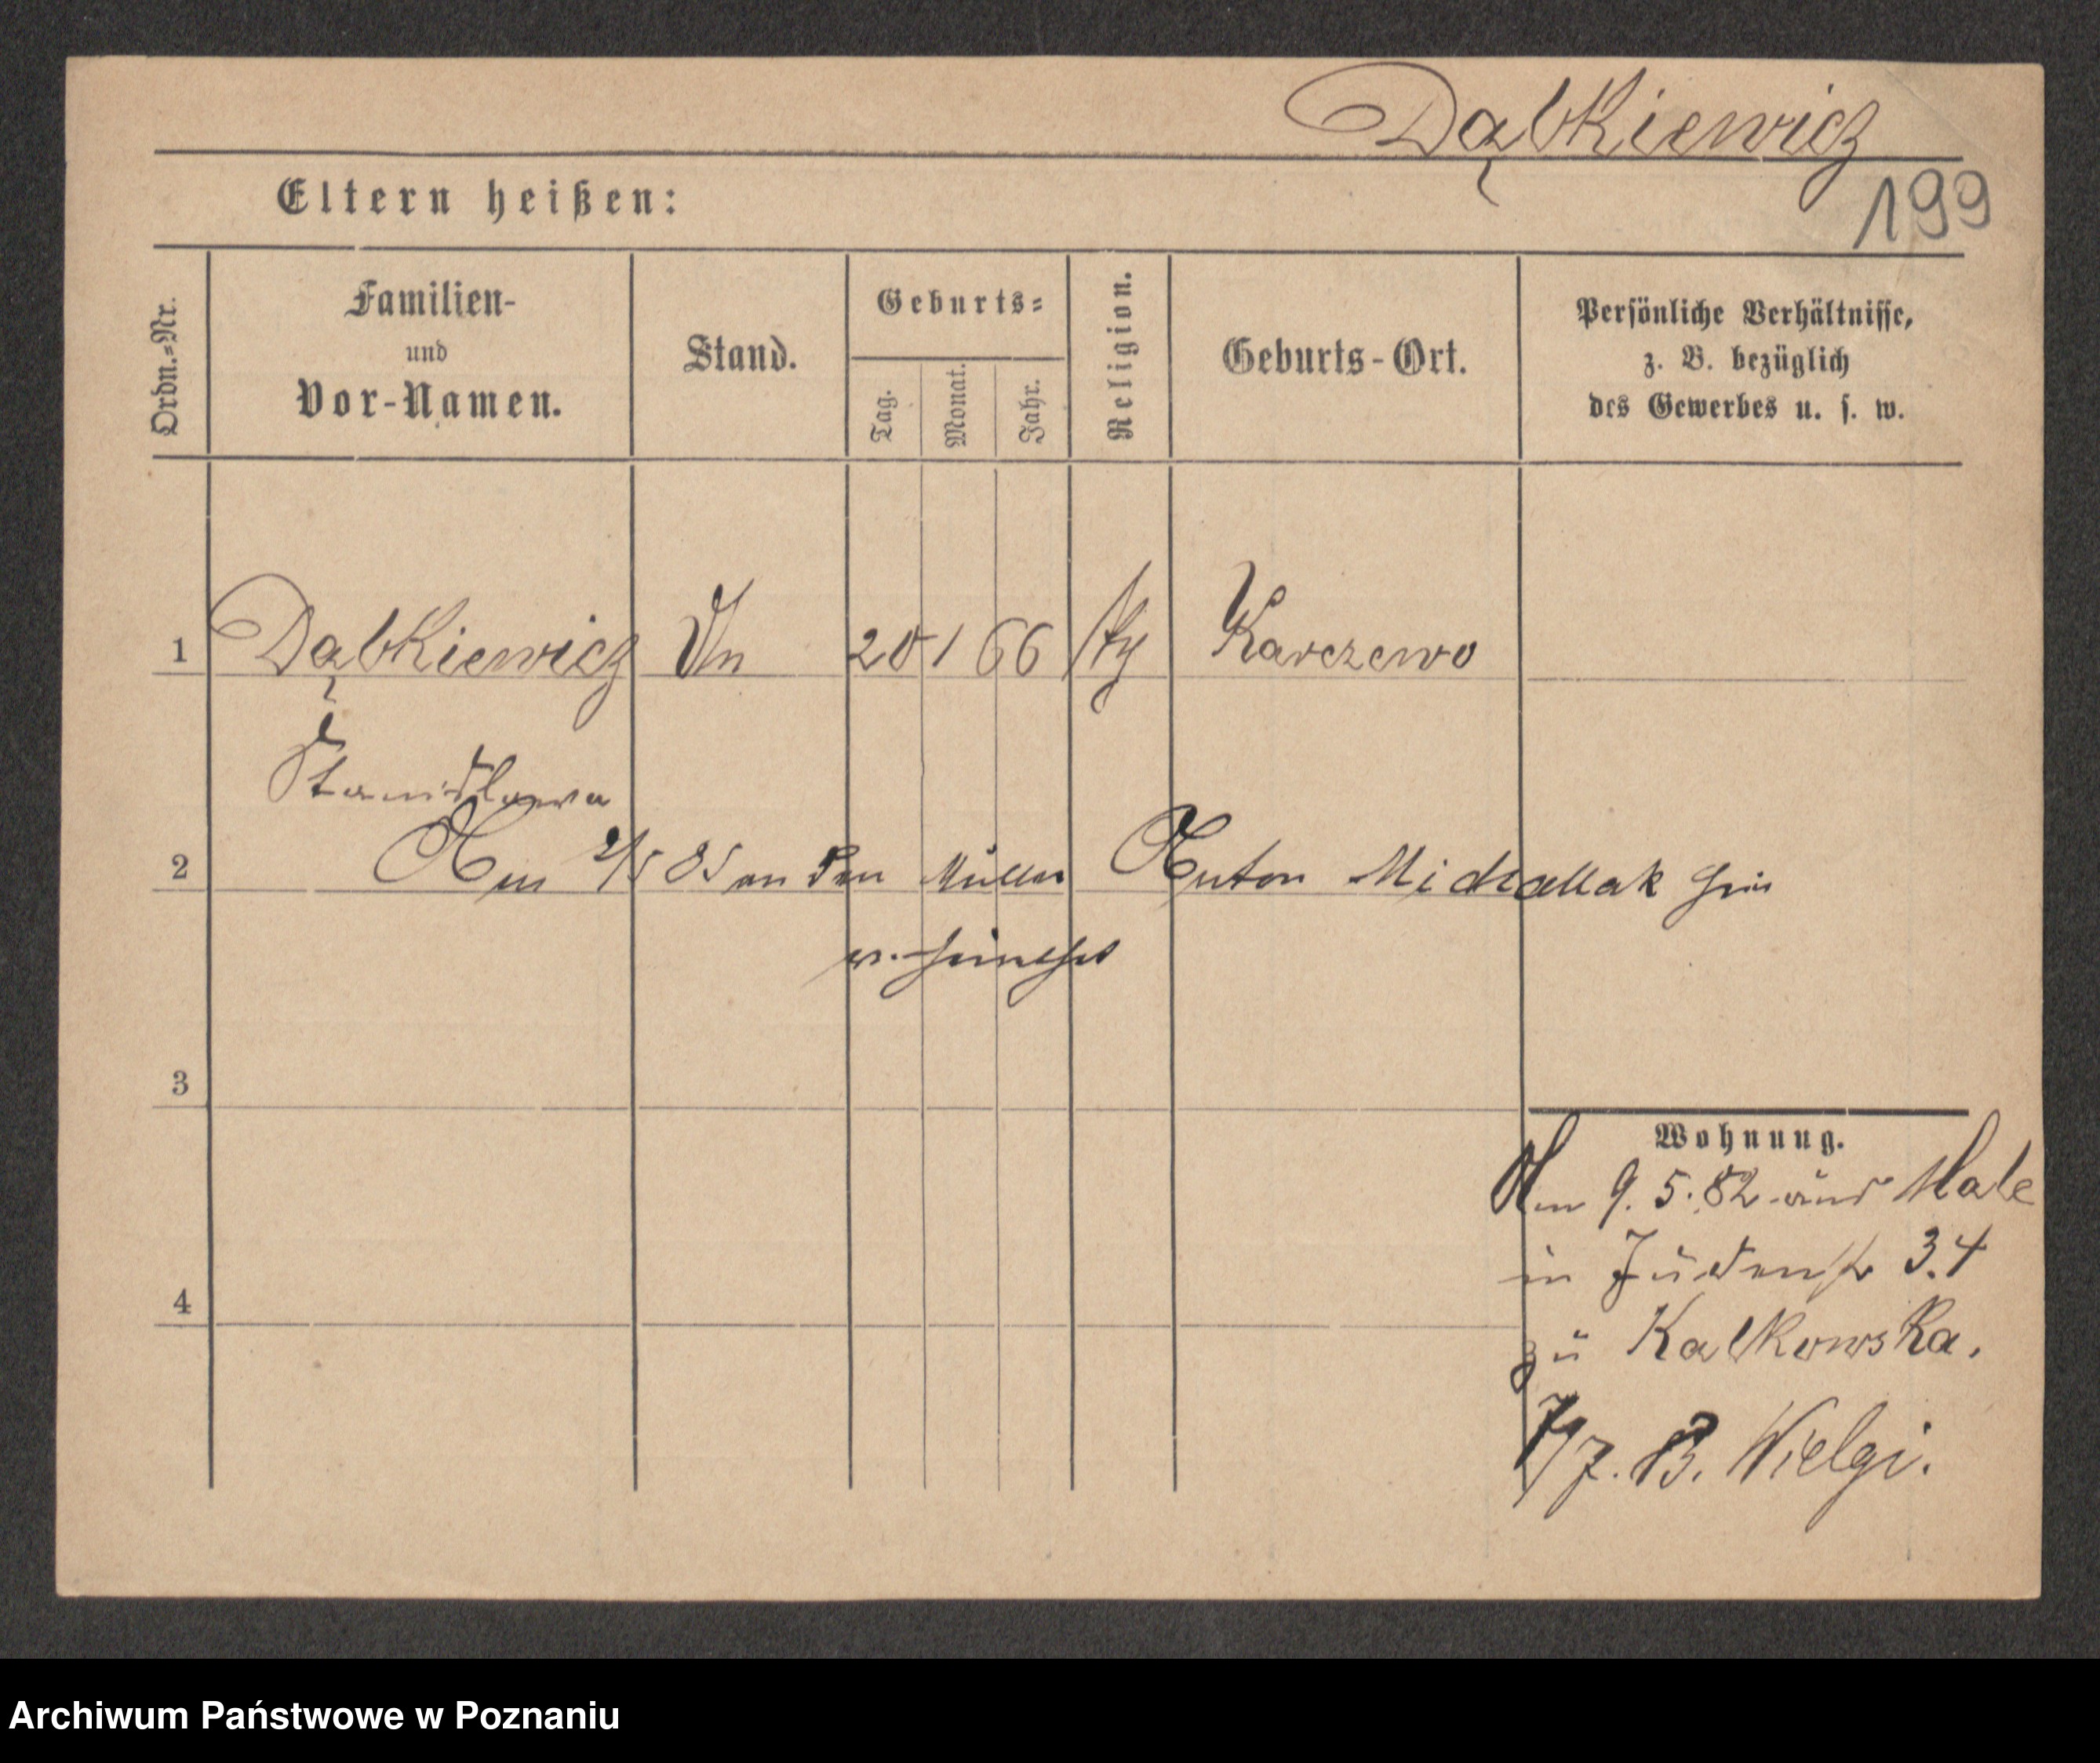 Dąbkiewicz
199
Eltern heißen:
Ordn.=Nr.
Familien-
und
Vor-Namen.
Stand.
Geburts=
Tag.
Monat.
Jahr.
Religion.
Geburts-Ort.
Persönliche Verhältnisse,
z. B. bezüglich
des Gewerbes u. s. w.
1 Dąbkiewicz 20 1 66 Karczewo
Stanislawa
2 Am 2/5 85 an den Müller Anton Michallak hier
verheirathet
3
Wohnung.
Am 9. 5. 82 aus
in Judenstr 3.4
zu Kalkowska.
4
7/7. 83. Wielgi.
Archiwum Państwowe w Poznaniu